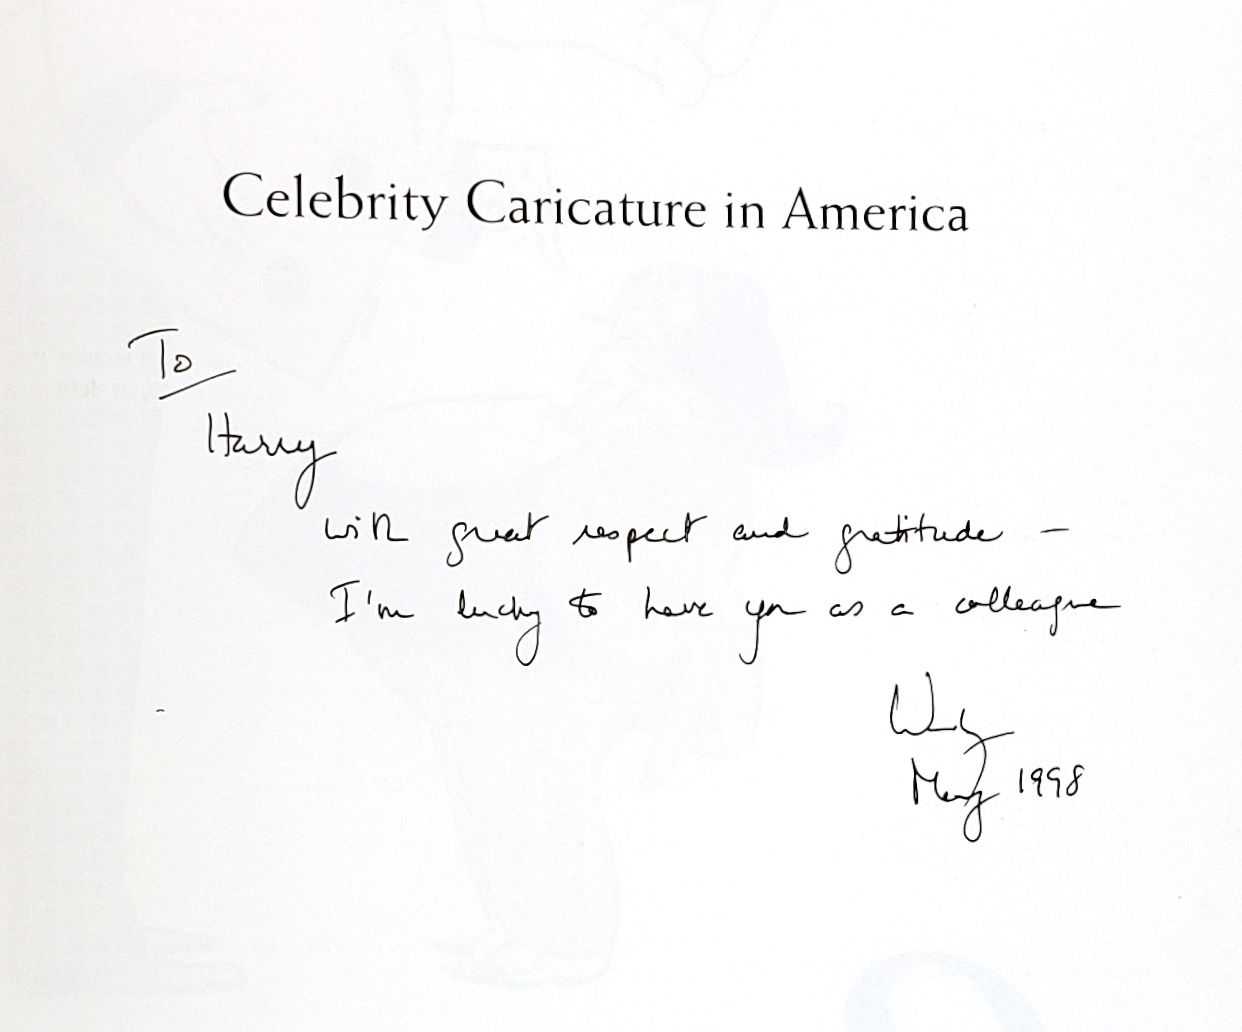 Celebrity Caricature in America
To
Harry
with great respect and gratitude —
I'm lucky to have you as a colleague
Wendy
May 1998